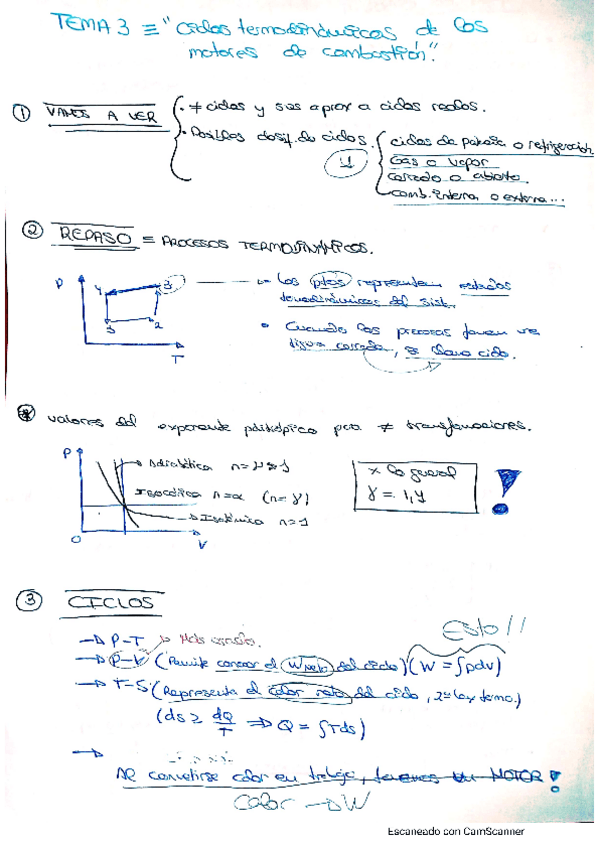 TEMA 3 ≡ "Ciclos termodinámicos de los
motores de combustión".
① VAMOS A VER
· ≠ ciclos y sus aprox a ciclos reales.
· Posibles dosif. de ciclos.
ciclos de potencia o refrigeración
Gas o vapor
cerrado o abierto.
comb. interna o externa...
② REPASO = PROCESOS TERMODINÁMICOS.
P
4
3
3
2
T
Los ptos representan estados
termodinámicos del sist.
• Cuando los procesos forman una
figura cerrada, se llama ciclo.
valores del exponente politrópico para ≠ transformaciones.
P
Adiabática
Isotérmica n=1
O
V
x lo general
γ = 1,4
③ CICLOS
→ P-T → Más usados.
→ P-V (Permite conocer el W neto del ciclo) (W = ∫pdv)
Esto!!
→ T-S (Representa el calor neto del ciclo, 2ª ley termo.)
(ds ≥ dQ/T ⇒ Q = ∫Tds)
→
AR convertirse calor en trabajo, tenemos un MOTOR!
Calor → W
Escaneado con CamScanner